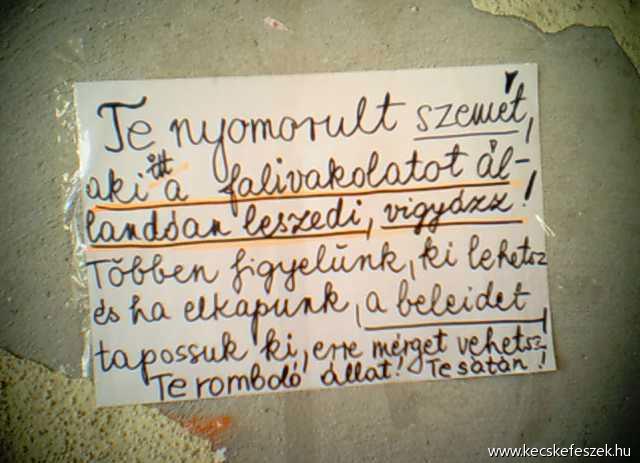 Te nyomorult szemét,
aki itt a falivakolatot ál-
landóan leszedi, vigyázz!
Többen figyelünk, ki lehetsz
és ha elkapunk, a beleidet
tapossuk ki, erre mérget vehetsz.
Te romboló állat! Te sátán!
www.kecskefeszek.hu